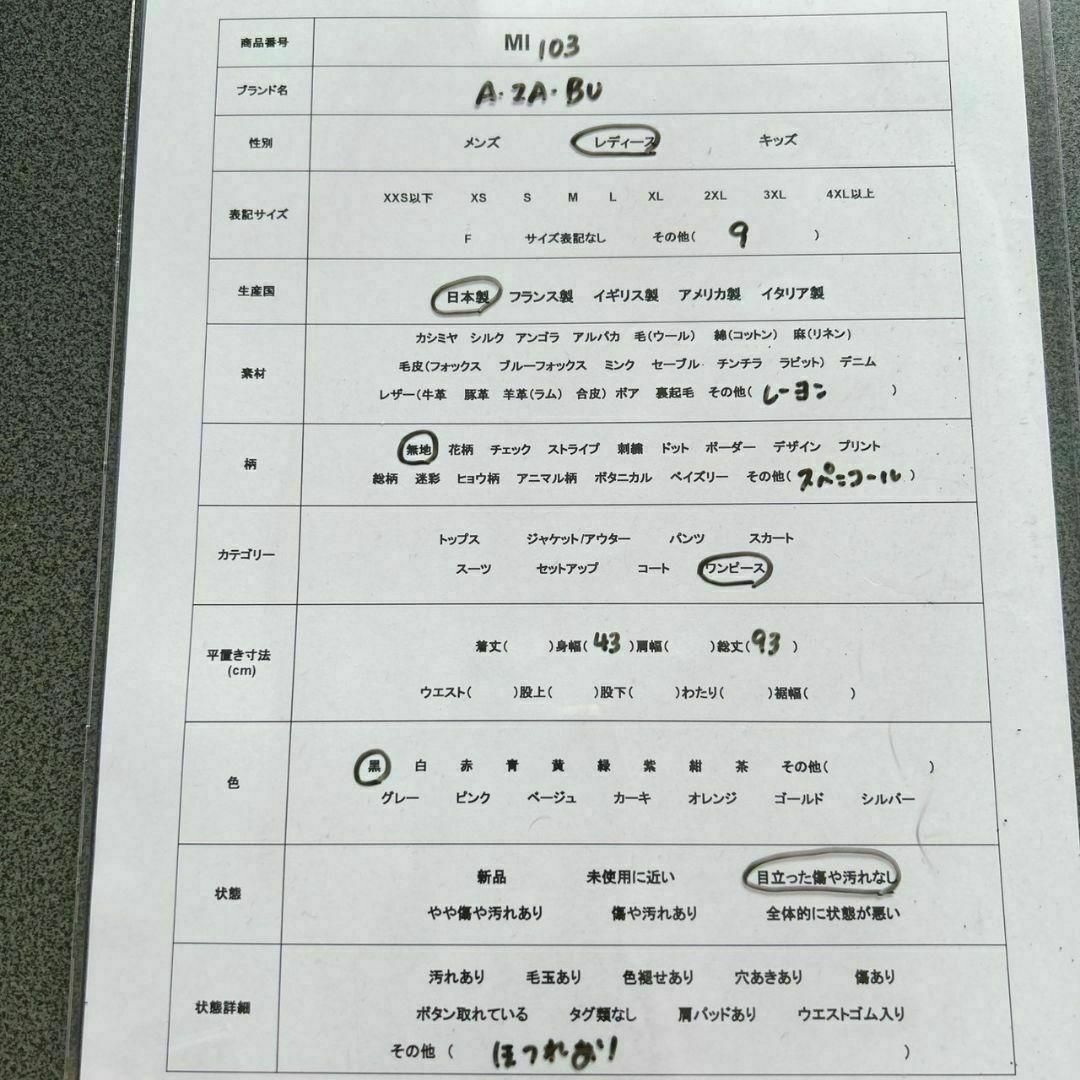 商品番号 MI 103
ブランド名 A・ZA・BU
性別 メンズ レディース キッズ
表記サイズ XXS以下 XS S M L XL 2XL 3XL 4XL以上
F サイズ表記なし その他( 9 )
生産国 日本製 フランス製 イギリス製 アメリカ製 イタリア製
カシミヤ シルク アンゴラ アルパカ 毛(ウール) 綿(コットン) 麻(リネン)
素材 毛皮(フォックス ブルーフォックス ミンク セーブル チンチラ ラビット) デニム
レザー(牛革 豚革 羊革(ラム) 合皮) ボア 裏起毛 その他( レーヨン )
柄 無地 花柄 チェック ストライプ 刺繍 ドット ボーダー デザイン プリント
総柄 迷彩 ヒョウ柄 アニマル柄 ボタニカル ペイズリー その他( スパンコール )
カテゴリー トップス ジャケット/アウター パンツ スカート
スーツ セットアップ コート ワンピース
平置き寸法 着丈( )身幅( 43 )肩幅( )総丈( 93 )
(cm) ウエスト( )股上( )股下( )わたり( )裾幅( )
色 黒 白 赤 青 黄 緑 紫 紺 茶 その他( )
グレー ピンク ベージュ カーキ オレンジ ゴールド シルバー
状態 新品 未使用に近い 目立った傷や汚れなし
やや傷や汚れあり 傷や汚れあり 全体的に状態が悪い
状態詳細 汚れあり 毛玉あり 色褪せあり 穴あきあり 傷あり
ボタン取れている タグ類なし 肩パッドあり ウエストゴム入り
その他 ( ほつれあり )